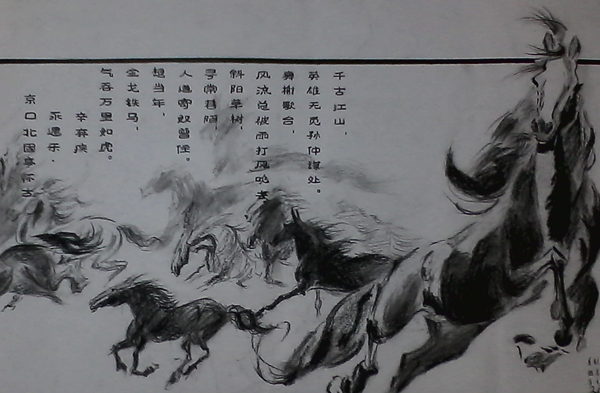 千古江山，
英雄无觅孙仲谋处。
舞榭歌台，
风流总被雨打风吹去
斜阳草树，
寻常巷陌，
人道寄奴曾住。
想当年，
金戈铁马，
气吞万里如虎。
辛弃疾
永遇乐、
京口北固亭怀古